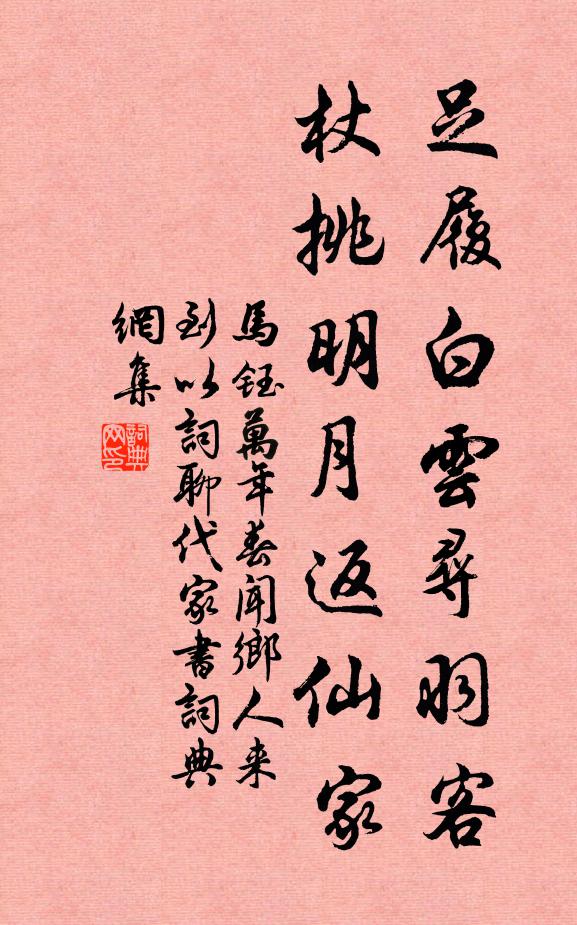 足履白雲尋羽客
杖挑明月返仙家
馬鈺萬年春聞鄉人来
到以詞聊代家書詞典
網集
詞典
网印